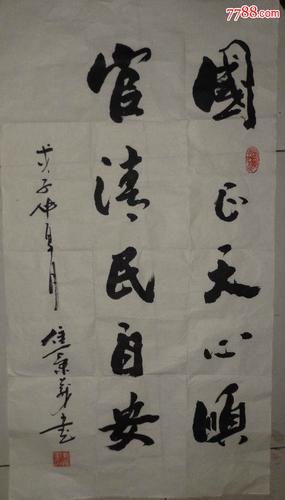 國正天心順
官清民自安
戊子仲夏月
7788.com